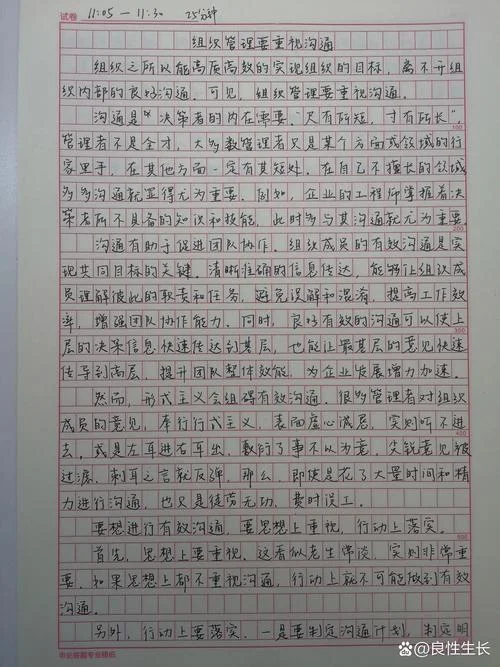 试卷 11:05—11:30 25分钟
组织管理要重视沟通
组织之所以能高质高效的实现组织的目标，离不开组
织内部的良好沟通。可见，组织管理要重视沟通。
沟通是“决策者的内在需要”。“尺有所短，寸有所长”，
100
管理者不是全才，大多数管理者只是某个方面或领域的行
家里手，在其他方面一定有其短处。在自己不擅长的领域
多多沟通就显得尤为重要。例如，企业的工程师掌握着决
策者所不具备的知识和技能，此时多与其沟通就尤为重要。
200
沟通有助于促进团队协作。组织成员的有效沟通是实
现共同目标的关键。清晰准确的信息传达，能够让组织成
员理解彼此的职责和任务，避免误解和混淆，提高工作效
率，增强团队协作能力。同时，良好有效的沟通可以使上
300
层的决策信息快速传达到基层，也能让最基层的意见快速
传导到高层，提升团队整体效能，为企业发展增力加速。
然而，形式主义会阻碍有效沟通。很多管理者对组织
成员的意见，奉行形式主义，表面虚心诚恳，实则听不进
400
去，或是左耳进右耳出，敷衍了事不以为意，尖锐意见被
过滤，刺耳之言就反弹，那么，即使是花了大量时间和精
力进行沟通，也只是徒劳无功，费时误工。
要想进行有效沟通，要思想上重视，行动上落实。
500
首先，思想上要重视。这看似老生常谈，实则非常重
要。如果思想上都不重视沟通，行动上就不可能做到有效
沟通。
另外，行动上要落实。一是要制定沟通计划，制定明
申论答题专业稿纸
@良性生长